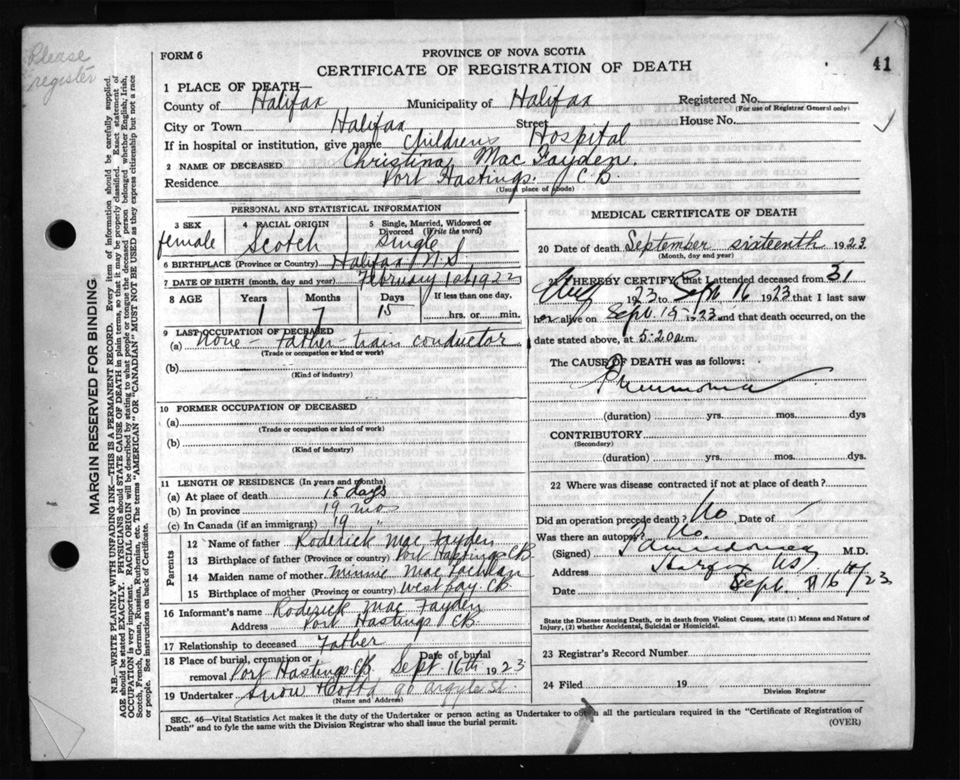 Please register
41
FORM 6
PROVINCE OF NOVA SCOTIA
CERTIFICATE OF REGISTRATION OF DEATH
1 PLACE OF DEATH—
County of Halifax Municipality of Halifax Registered No.
(For use of Registrar General only)
City or Town Halifax Street House No.
If in hospital or institution, give name Childrens Hospital
2 NAME OF DECEASED Christina Mac Fayden.
Residence Port Hastings. C.B.
(Usual place of abode)
PERSONAL AND STATISTICAL INFORMATION
3 SEX 4 RACIAL ORIGIN 5 Single, Married, Widowed or Divorced (Write the word)
female Scotch single
6 BIRTHPLACE (Province or Country) Halifax N.S.
7 DATE OF BIRTH (month, day and year) February 1st 1922
8 AGE Years Months Days If less than one day,
1 7 15 hrs. or min.
9 LAST OCCUPATION OF DECEASED
(a) none - Father - train conductor
(Trade or occupation or kind or work)
(b)
(Kind of industry)
10 FORMER OCCUPATION OF DECEASED
(a)
(Trade or occupation or kind of work)
(b)
(Kind of industry)
11 LENGTH OF RESIDENCE (In years and months)
(a) At place of death 15 days
(b) In province 19 mos
(c) In Canada (if an immigrant) 19 "
Parents
12 Name of father Roderick Mac Fayden
13 Birthplace of father (Province or Country) Port Hastings C.B.
14 Maiden name of mother Minnie Mac Lachlan
15 Birthplace of mother (Province or Country) West Bay C.B.
16 Informant's name Roderick Mac Fayden
Address Port Hastings C.B.
17 Relationship to deceased Father
18 Place of burial, cremation or removal Port Hastings C.B. Date of burial Sept 16th 1923
19 Undertaker Snow 90 Argyle St.
(Name and Address)
MEDICAL CERTIFICATE OF DEATH
20 Date of death September sixteenth 1923
(Month, day and year)
21 I HEREBY CERTIFY that I attended deceased from 31
Aug 1923 to Sept 16 1923 that I last saw
her alive on Sept. 15 - 1923 and that death occurred, on the
date stated above, at 5:20 a.m.
The CAUSE OF DEATH was as follows:
Pneumonia
(duration) yrs. mos. dys
CONTRIBUTORY
(Secondary)
(duration) yrs. mos. dys.
22 Where was disease contracted if not at place of death?
Did an operation precede death? No Date of
Was there an autopsy? No.
(Signed) M.D.
Address Halifax NS
Date Sept. 16th/23
State the Disease causing Death, or in death from Violent Causes, state (1) Means and Nature of Injury, (2) whether Accidental, Suicidal or Homicidal.
23 Registrar's Record Number
24 Filed 19
Division Registrar
SEC. 46—Vital Statistics Act makes it the duty of the Undertaker or person acting as Undertaker to obtain all the particulars required in the "Certificate of Registration of
Death" and to fyle the same with the Division Registrar who shall issue the burial permit.
(OVER)
MARGIN RESERVED FOR BINDING
N.B.—WRITE PLAINLY WITH UNFADING INK—THIS IS A PERMANENT RECORD. Every item of information should be carefully supplied.
AGE should be stated EXACTLY. PHYSICIANS should STATE CAUSE OF DEATH in plain terms, so that it may be properly classified. Exact statement of
OCCUPATION is very important. RACIAL ORIGIN will be described by stating to what people or tongue the deceased person belonged whether English, Irish,
Scotch, French, German, Russian, Ruthenian, etc. The terms "AMERICAN" OR "CANADIAN" MUST NOT BE USED as they express citizenship but not a race
or people. See instructions on back of Certificate.